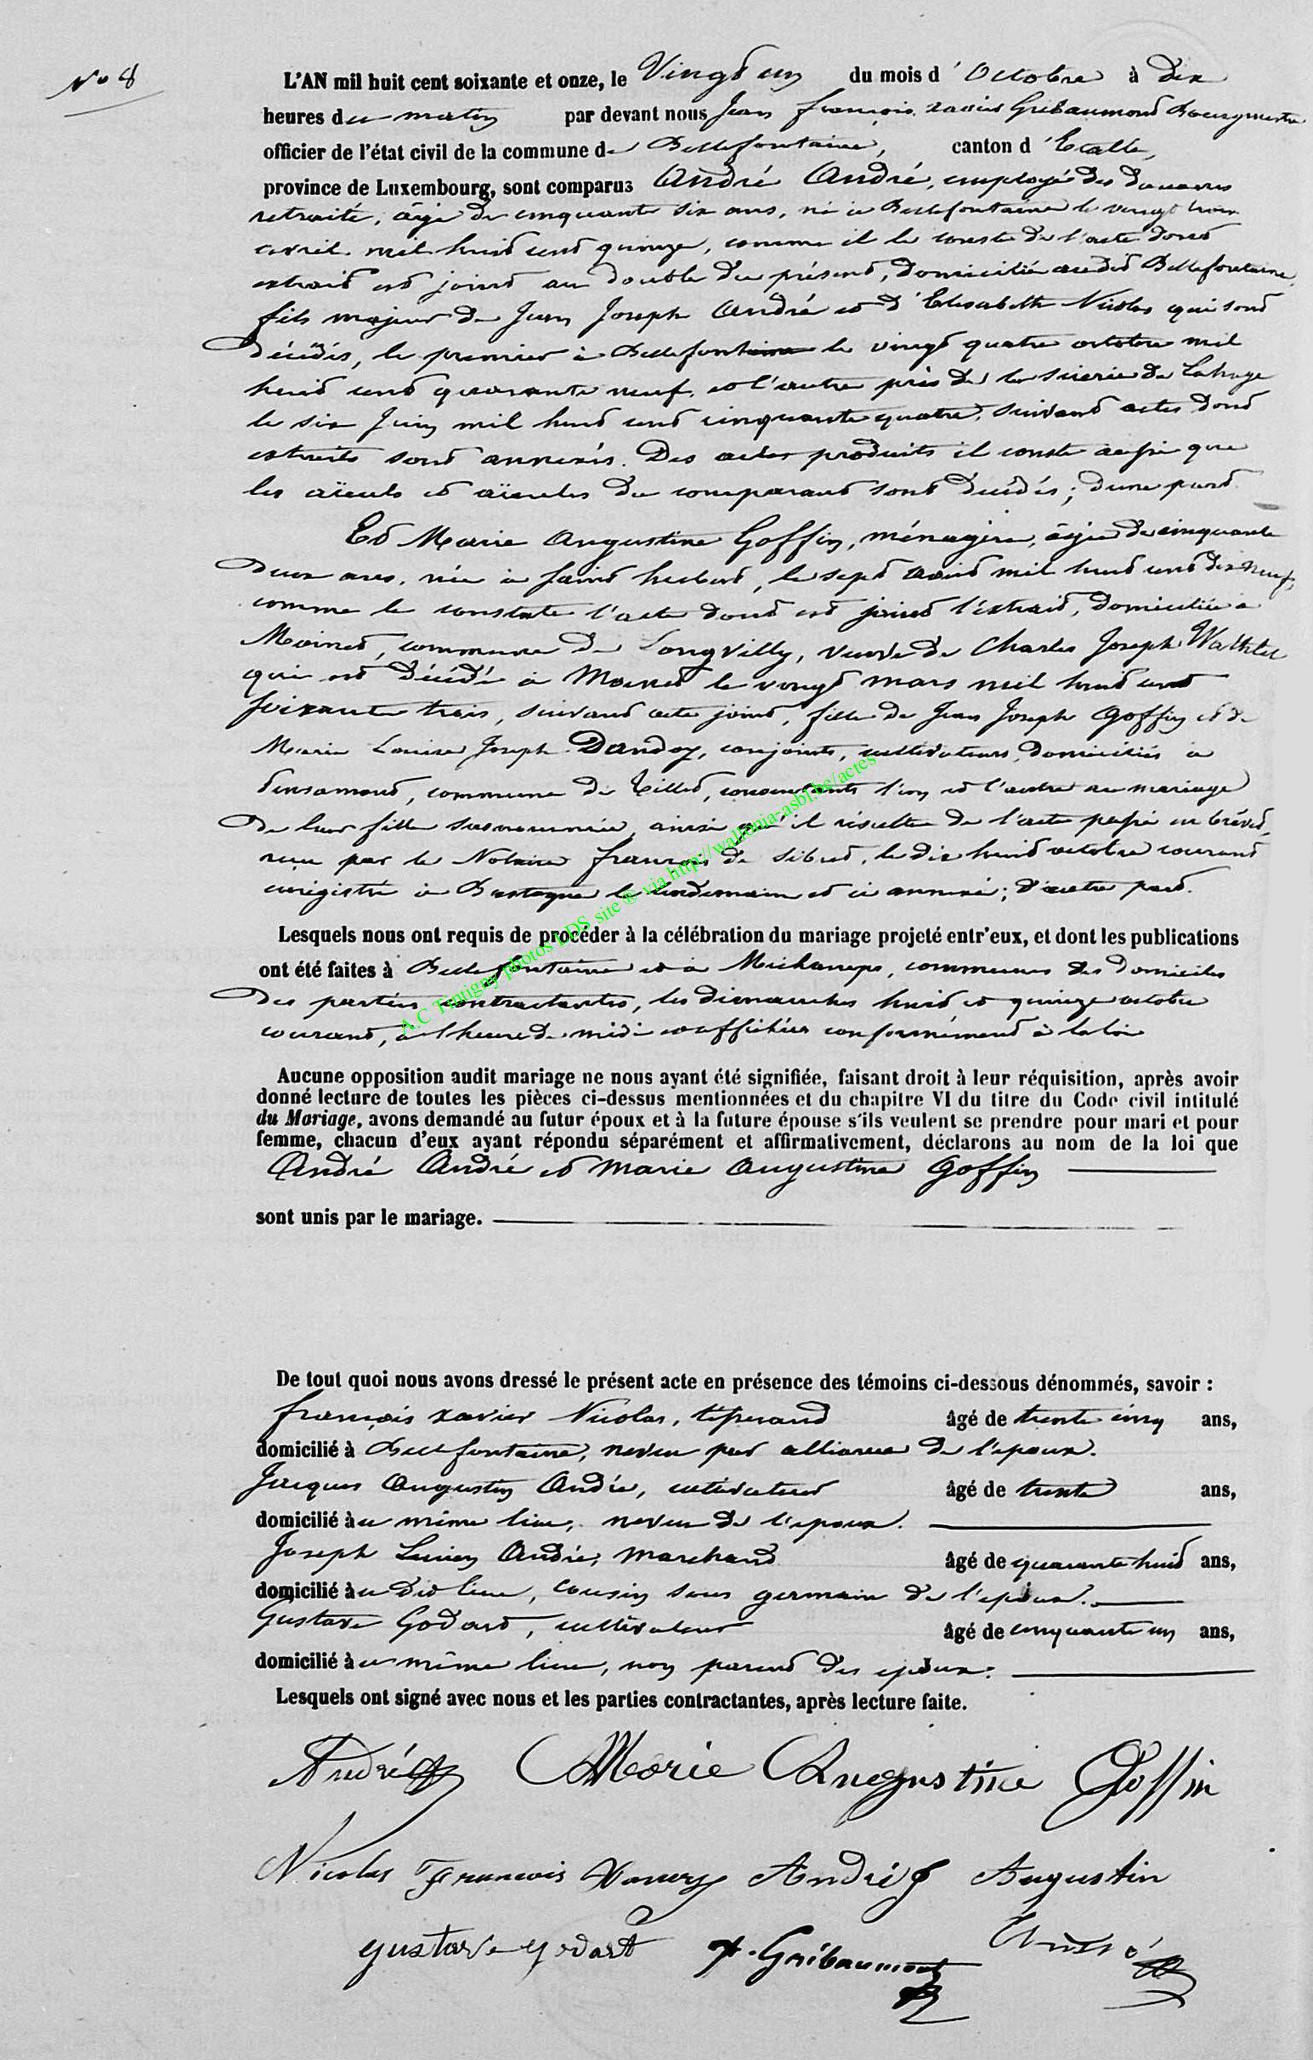 No 8
L'AN mil huit cent soixante et onze, le Vingt un du mois d'Octobre à dix
heures du matin par devant nous Jean françois xavier Gribaumont Bourgmestre
officier de l'état civil de la commune de Bellefontaine, canton d'Etalle,
province de Luxembourg, sont comparus André André, employé des douanes
retraité, âgé de cinquante six ans, né à Bellefontaine le vingt trois
avril mil huit cent quinze, comme il le conste de l'acte dont
extrait est joint au double du présent, domicilié audit Bellefontaine,
fils majeur de Jean Joseph André et d'Elisabeth Nicolas qui sont
décédés, le premier à Bellefontaine le vingt quatre octobre mil
huit cent quarante neuf et l'autre près de la scierie de Lahage
le six Juin mil huit cent cinquante quatre, suivant actes dont
extraits sont annexés. Des actes produits il conste aussi que
les aïeuls et aïeules du comparant sont décédés; d'une part.
Et Marie Augustine Goffin, ménagère, âgée de cinquante
deux ans, née à saint hubert, le sept août mil huit cent dix neuf,
comme le constate l'acte dont est joint l'extrait, domiciliée à
Moinet, commune de Longvilly, veuve de Charles Joseph Wathlet
qui est décédé à Moinet le vingt mars mil huit cent
soixante trois, suivant acte joint, fille de Jean Joseph Goffin et de
Marie Louise Joseph Dandoy, conjoints, cultivateurs, domiciliés à
commune de Tillet, consentants l'un et l'autre au mariage
de leur fille susnommée, ainsi qu'il résulte de l'acte passé en brévet,
reçu par le Notaire françois de Sibret, le dix huit octobre courant
enregistré à Bastogne le lendemain et ci annexé; d'autre part.
A.C Tintigny photos DDS site ® via http://wallonia-asbl.be/actes
Lesquels nous ont requis de procéder à la célébration du mariage projeté entr'eux, et dont les publications
ont été faites à Bellefontaine et à Michamps, communes des domiciles
des parties contractantes, les dimanches huit et quinze octobre
courant, à l'heure de midi et affichées conformément à la loi
Aucune opposition audit mariage ne nous ayant été signifiée, faisant droit à leur réquisition, après avoir
donné lecture de toutes les pièces ci-dessus mentionnées et du chapitre VI du titre du Code civil intitulé
du Mariage, avons demandé au futur époux et à la future épouse s'ils veulent se prendre pour mari et pour
femme, chacun d'eux ayant répondu séparément et affirmativement, déclarons au nom de la loi que
André André et Marie Augustine Goffin
sont unis par le mariage.
De tout quoi nous avons dressé le présent acte en présence des témoins ci-dessous dénommés, savoir :
françois xavier Nicolas, tisserand âgé de trente cinq ans,
domicilié à Bellefontaine, neveu par alliance de l'époux.
Jacques Augustin André, cultivateur âgé de trente ans,
domicilié au même lieu, neveu de l'époux.
Joseph Lucien André, marchand âgé de quarante huit ans,
domicilié au dit lieu, cousin sous germain de l'époux.
Gustave Godart, cultivateur âgé de cinquante un ans,
domicilié au même lieu, non parent des époux.
Lesquels ont signé avec nous et les parties contractantes, après lecture faite.
André Marie Augustine Goffin
Nicolas François Xavier André J Augustin
gustave godart X. Gribaumont André